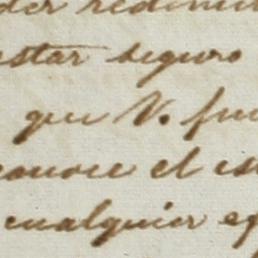 der redimir
estar seguro
que V. fue
conoce el es
cualquier ep